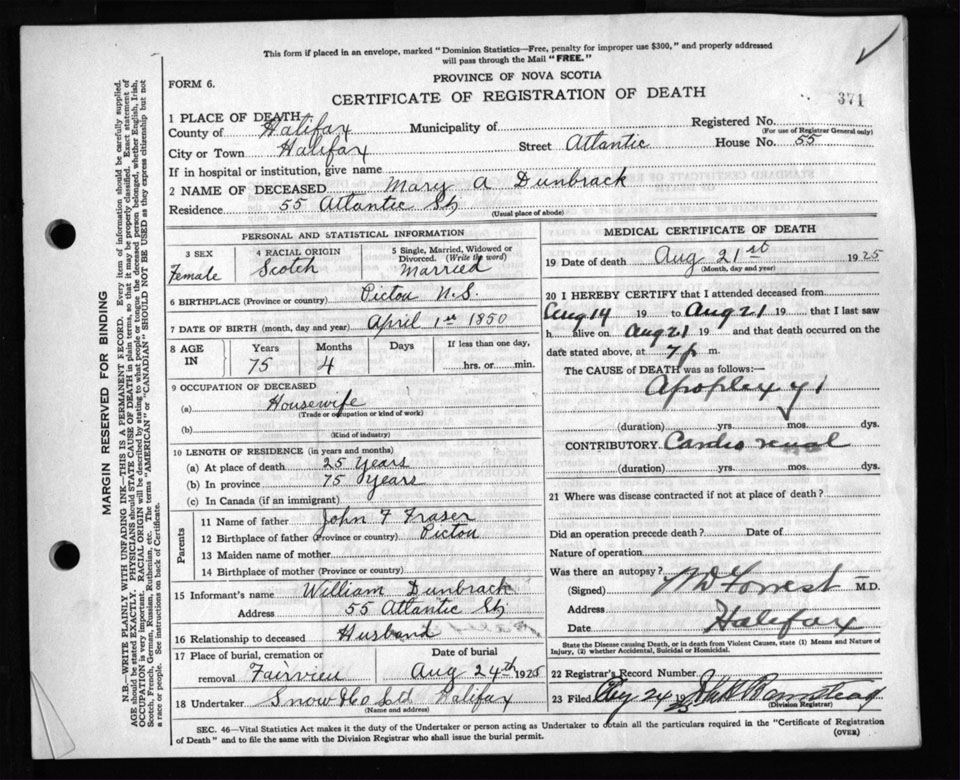 This form if placed in an envelope, marked "Dominion Statistics—Free, penalty for improper use $300," and properly addressed
will pass through the Mail "FREE."
PROVINCE OF NOVA SCOTIA
FORM 6.
CERTIFICATE OF REGISTRATION OF DEATH
371
1 PLACE OF DEATH
County of Halifax Municipality of Registered No.
(For use of Registrar General only)
City or Town Halifax Street Atlantic House No. 55
If in hospital or institution, give name
2 NAME OF DECEASED Mary A Dunbrack
Residence 55 Atlantic St
(Usual place of abode)
PERSONAL AND STATISTICAL INFORMATION
3 SEX 4 RACIAL ORIGIN 5 Single, Married, Widowed or
Divorced. (Write the word)
Female Scotch Married
6 BIRTHPLACE (Province or country) Pictou N.S.
7 DATE OF BIRTH (month, day and year) April 1st 1850
8 AGE IN Years Months Days If less than one day,
75 4 hrs. or min.
9 OCCUPATION OF DECEASED
(a) Housewife
(Trade or occupation or kind of work)
(b)
(Kind of industry)
10 LENGTH OF RESIDENCE (in years and months)
(a) At place of death 25 Years
(b) In province 75 Years
(c) In Canada (if an immigrant)
Parents
11 Name of father John F Fraser
12 Birthplace of father (Province or country) Pictou
13 Maiden name of mother
14 Birthplace of mother (Province or country)
15 Informant's name William Dunbrack
Address 55 Atlantic St
16 Relationship to deceased Husband
17 Place of burial, cremation or Date of burial
removal Fairview Aug 24th 1925
18 Undertaker Snow & Co Ltd Halifax
(Name and address)
MEDICAL CERTIFICATE OF DEATH
19 Date of death Aug 21st 1925
(Month, day and year)
20 I HEREBY CERTIFY that I attended deceased from
Aug 14 19 to Aug 21 19 that I last saw
h alive on Aug 21 19 and that death occurred on the
date stated above, at 7 p m.
The CAUSE of DEATH was as follows:—
Apoplexy
(duration) yrs. mos. dys.
CONTRIBUTORY Cardio renal
(duration) yrs. mos. dys.
21 Where was disease contracted if not at place of death?
Did an operation precede death? Date of
Nature of operation
Was there an autopsy?
(Signed) Forrest M.D.
Address Halifax
Date
State the Disease causing Death, or in death from Violent Causes, state (1) Means and Nature of
Injury, (2) whether Accidental, Suicidal or Homicidal.
22 Registrar's Record Number
23 Filed Aug 24 19
(Division Registrar)
SEC. 46—Vital Statistics Act makes it the duty of the Undertaker or person acting as Undertaker to obtain all the particulars required in the "Certificate of Registration
of Death" and to file the same with the Division Registrar who shall issue the burial permit.
(OVER)
MARGIN RESERVED FOR BINDING
N.B.—WRITE PLAINLY WITH UNFADING INK—THIS IS A PERMANENT RECORD. Every item of information should be carefully supplied.
AGE should be stated EXACTLY. PHYSICIANS should STATE CAUSE OF DEATH in plain terms, so that it may be properly classified. Exact statement of
OCCUPATION is very important. RACIAL ORIGIN will be described by stating to what people or tongue the deceased person belonged, whether English, Irish,
Scotch, French, German, Russian, Ruthenian, etc. The terms "AMERICAN" or "CANADIAN" SHOULD NOT BE USED as they express citizenship but not
a race or people. See instructions on back of Certificate.